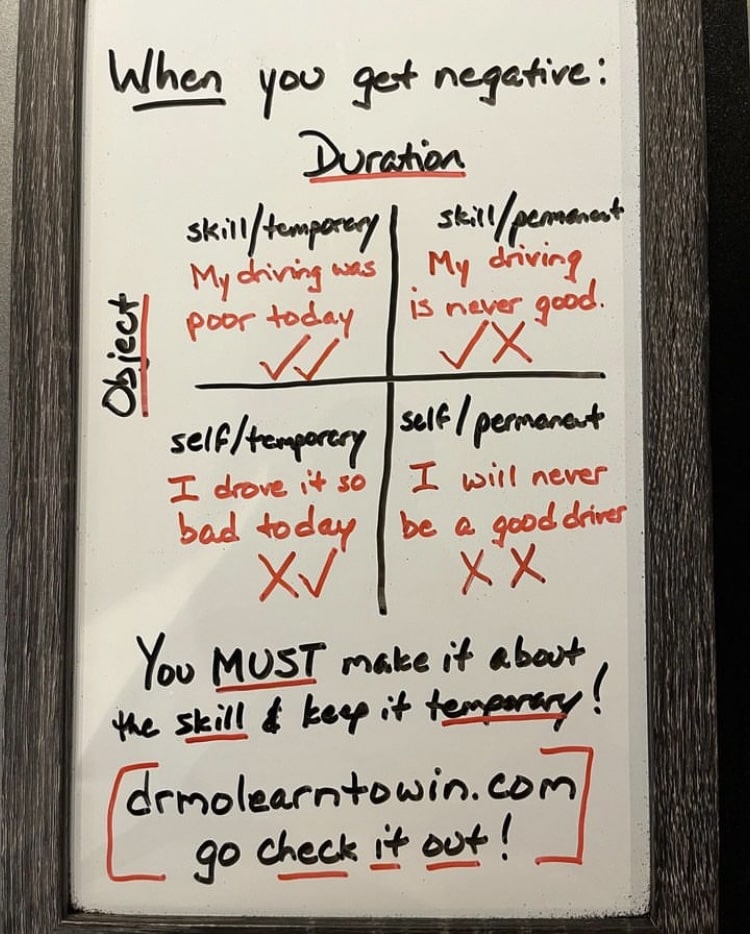 When you get negative:
Duration
Object
skill/temporary
My driving was
poor today
✓✓
skill/permanent
My driving
is never good.
✓X
self/temporary
I drove it so
bad today
X✓
self/permanent
I will never
be a good driver
X X
You MUST make it about
the skill & keep it temporary!
drmolearntowin.com
go check it out!